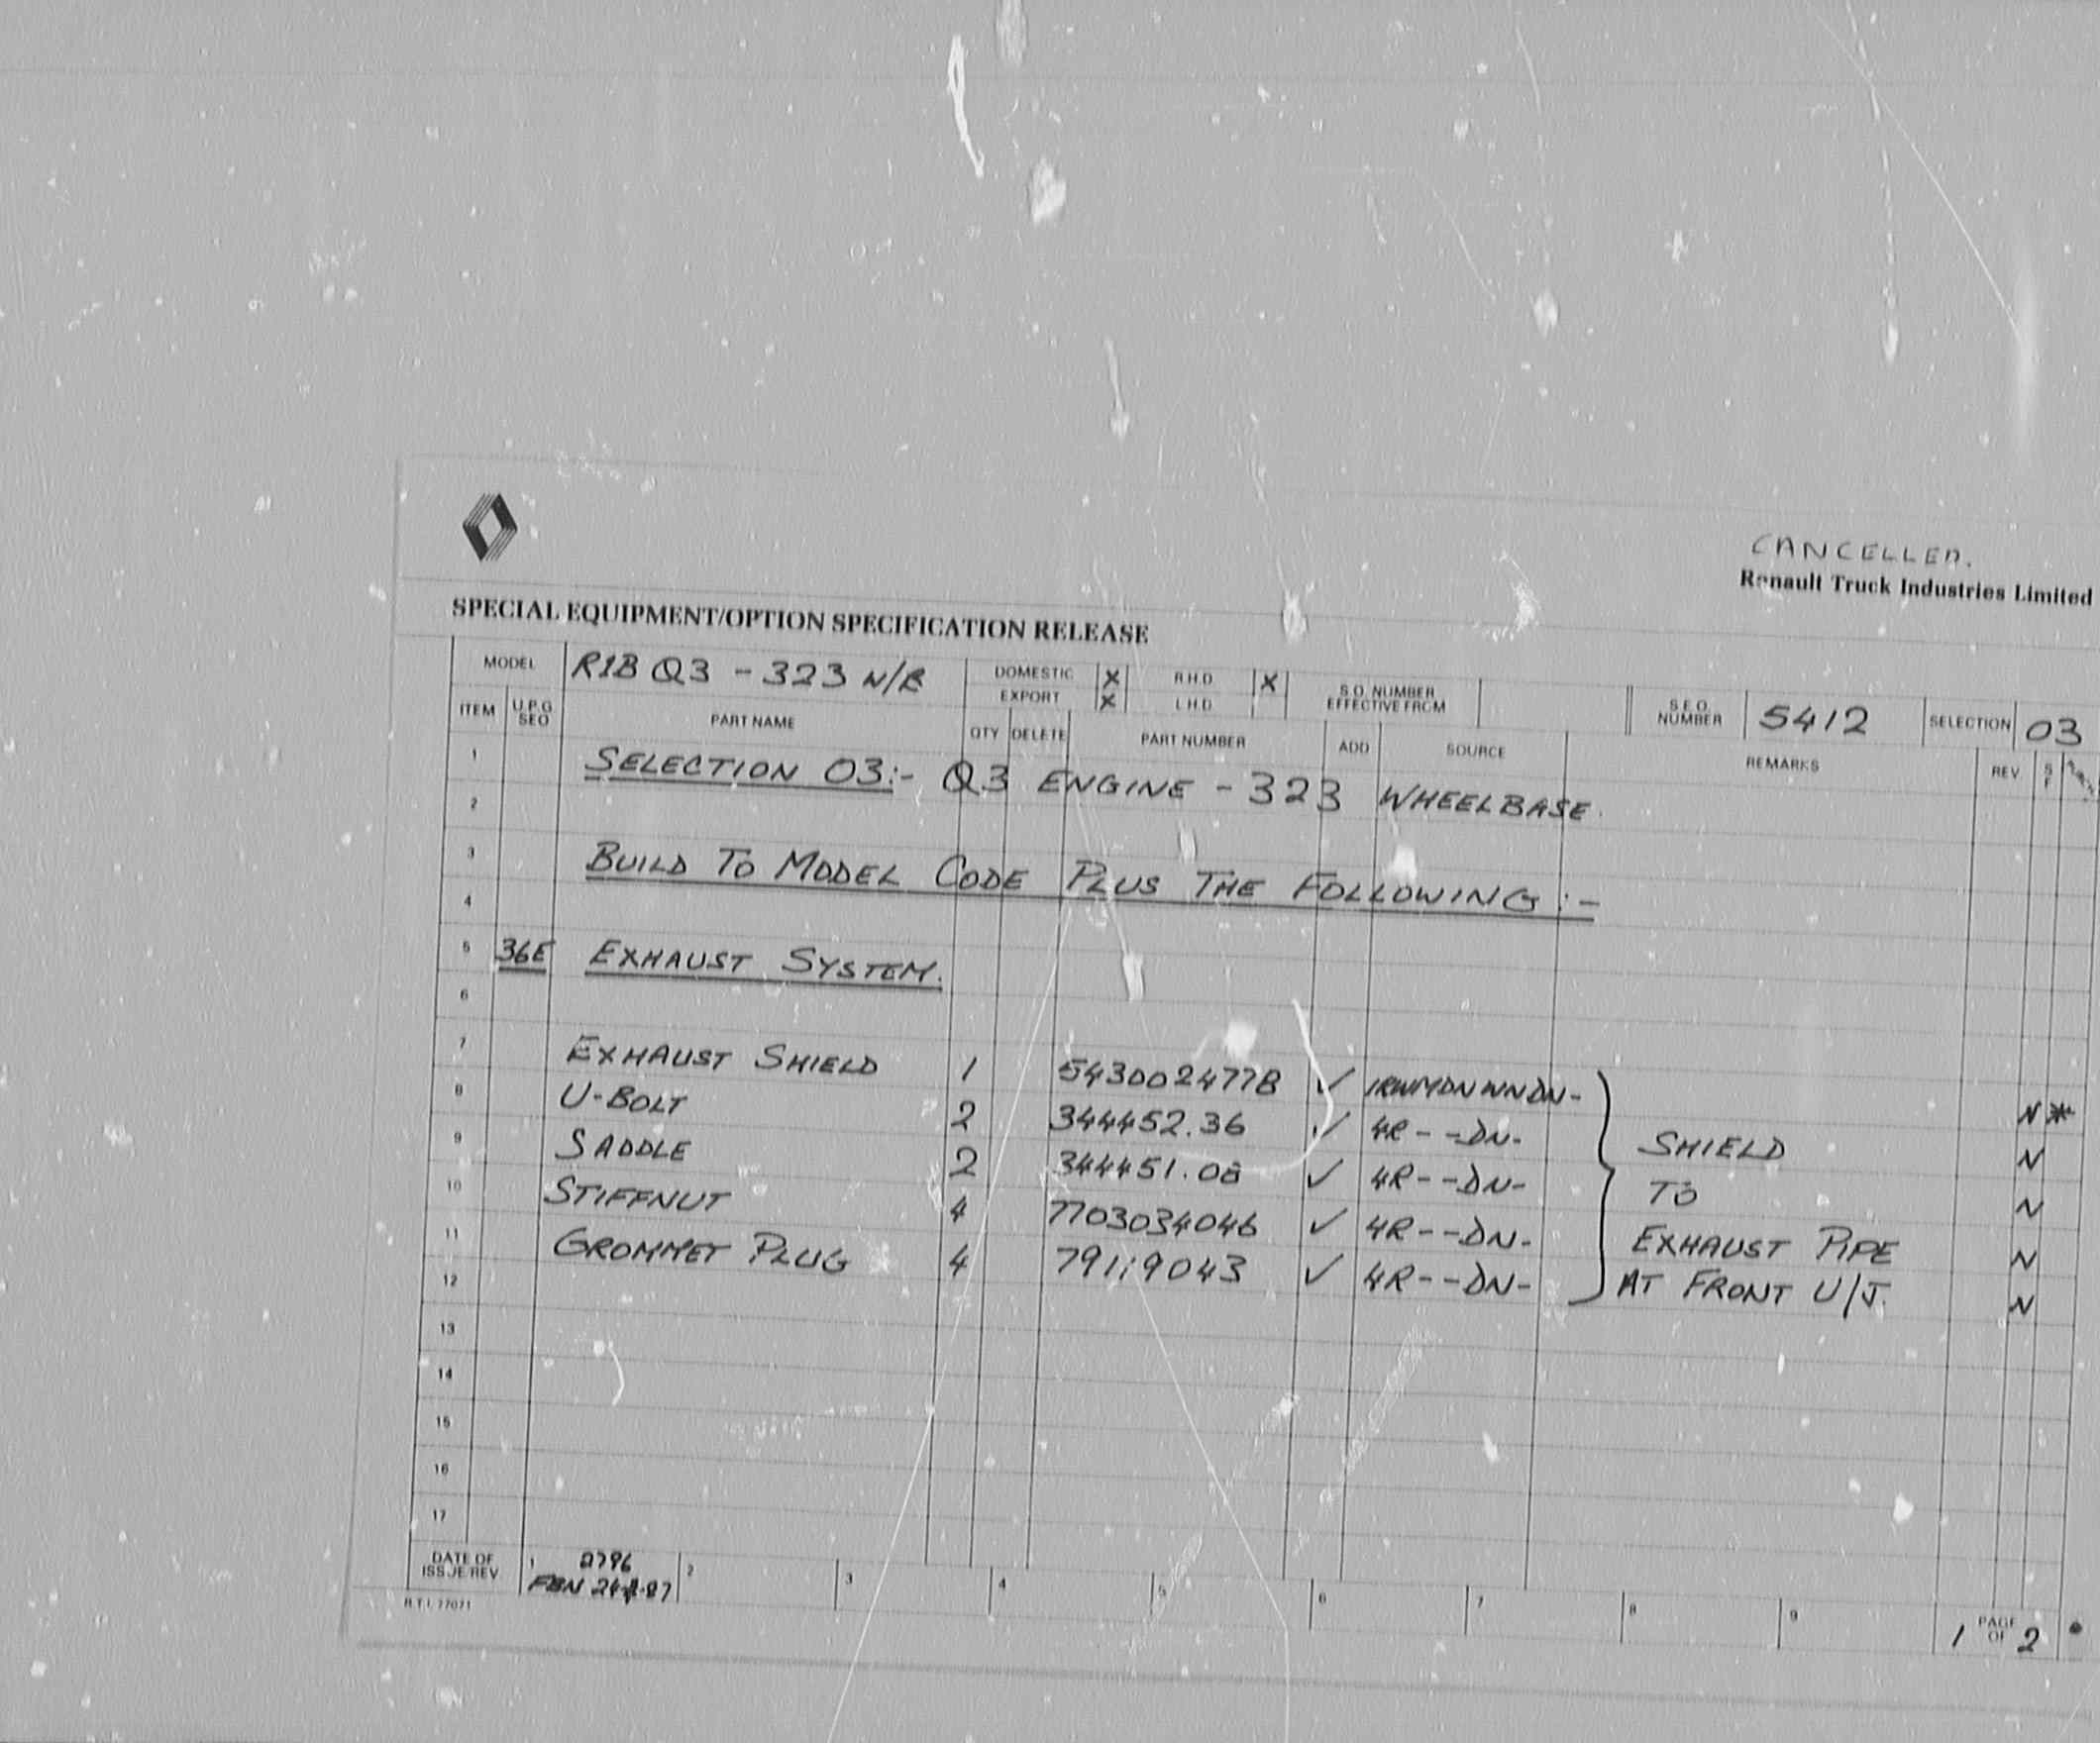 CANCELLED.
Renault Truck Industries Limited
SPECIAL EQUIPMENT/OPTION SPECIFICATION RELEASE
MODEL R1B Q3 - 323 N/B DOMESTIC X R.H.D X S.O. NUMBER EFFECTIVE FROM S.E.O. NUMBER 5412 SELECTION 03
EXPORT X L.H.D
ITEM U.P.G SEO PART NAME QTY DELETE PART NUMBER ADD SOURCE REMARKS REV S F
1 SELECTION 03:- Q3 ENGINE - 323 WHEELBASE.
2
3 BUILD TO MODEL CODE PLUS THE FOLLOWING :-
4
5 36E EXHAUST SYSTEM.
6
7 EXHAUST SHIELD 1 543002477B ✓ 1RWMDNWNDN- N *
8 U-BOLT 2 344452.36 ✓ 4R--DN- SHIELD N
9 SADDLE 2 344451.08 ✓ 4R--DN- TO N
10 STIFFNUT 4 7703034046 ✓ 4R--DN- EXHAUST PIPE N
11 GROMMET PLUG 4 79119043 ✓ 4R--DN- AT FRONT U/J. N
12
13
14
15
16
17
DATE OF ISSUE/REV 1 2796 2 3 4 5 6 7 8 9 1 PAGE OF 2
R.T.I. 77071